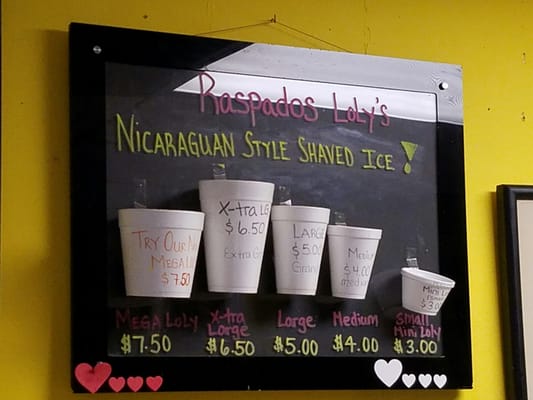 Raspados Loly's
Nicaraguan Style Shaved Ice!
Try Our
Mega
$7.50
X-tra LG
$6.50
Extra
Large
$5.00
Grande
Medium
$4.00
Mini
$3.0
Mega Loly
$7.50
X-tra
Large
$6.50
Large
$5.00
Medium
$4.00
Small
Mini Loly
$3.00